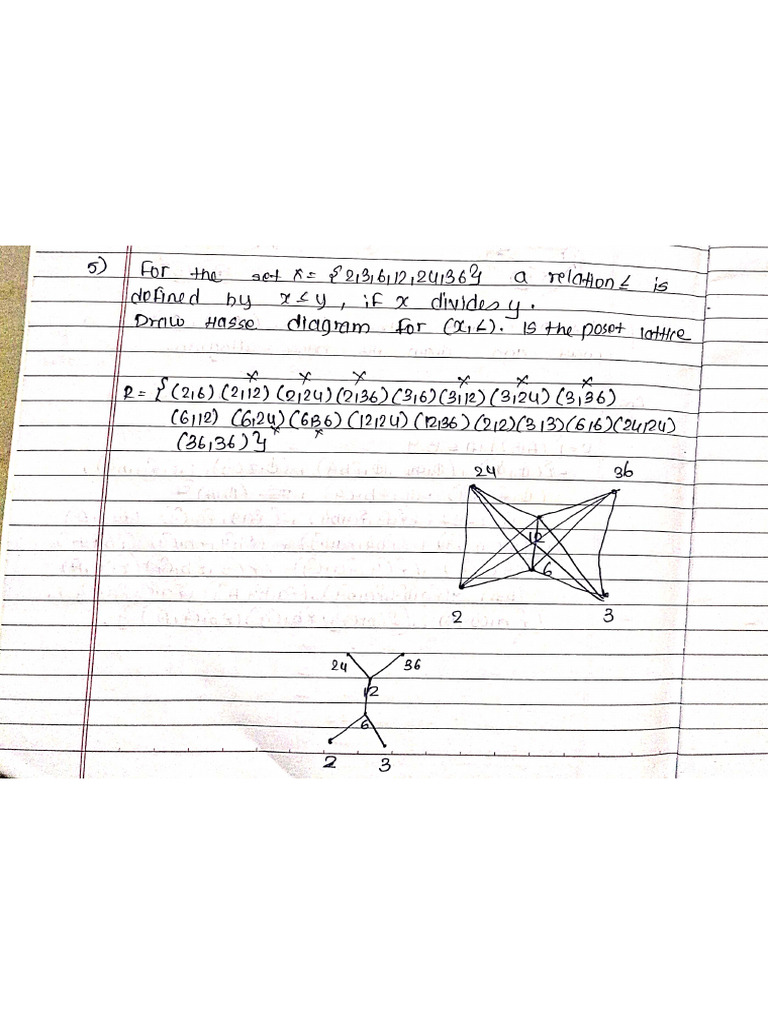 5) For the set X = {2,3,6,12,24,36} a relation ≤ is
defined by x ≤ y, if x divides y.
Draw Hasse diagram for (x,≤). Is the poset lattice
x x x x x x
R = {(2,6) (2,12) (2,24) (2,36) (3,6) (3,12) (3,24) (3,36)
(6,12) (6,24) (6,36) (12,24) (12,36) (2,2) (3,3) (6,6) (24,24)
x x
(36,36)}
24 36
12
6
2 3
24 36
12
6
2 3